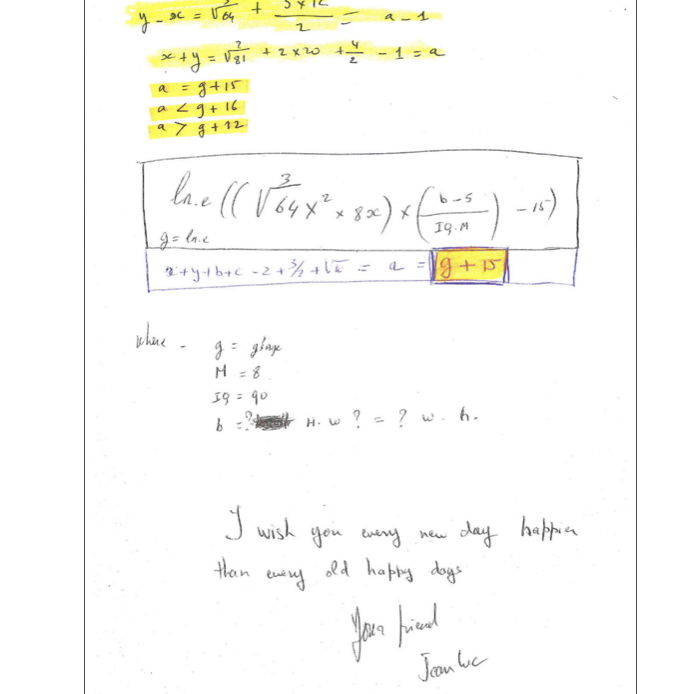 y - x = √64 + 5 x 12 / 2 = a - 1
x + y = ²√81 + 2 x 20 + 4/2 - 1 = a
a = g + 15
a < g + 16
a > g + 12
ln.e ((³√64 x² x 8x) x (b - 5 / IQ.M) - 15)
g = ln.e
x + y + b + c - 2 + 3/2 + √ = a = g + 15
where -
g =
M = 8
IQ = 90
b = ? H. w ? = ? w. h.
I wish you every new day happier
than every old happy days
Your friend
Jean Luc